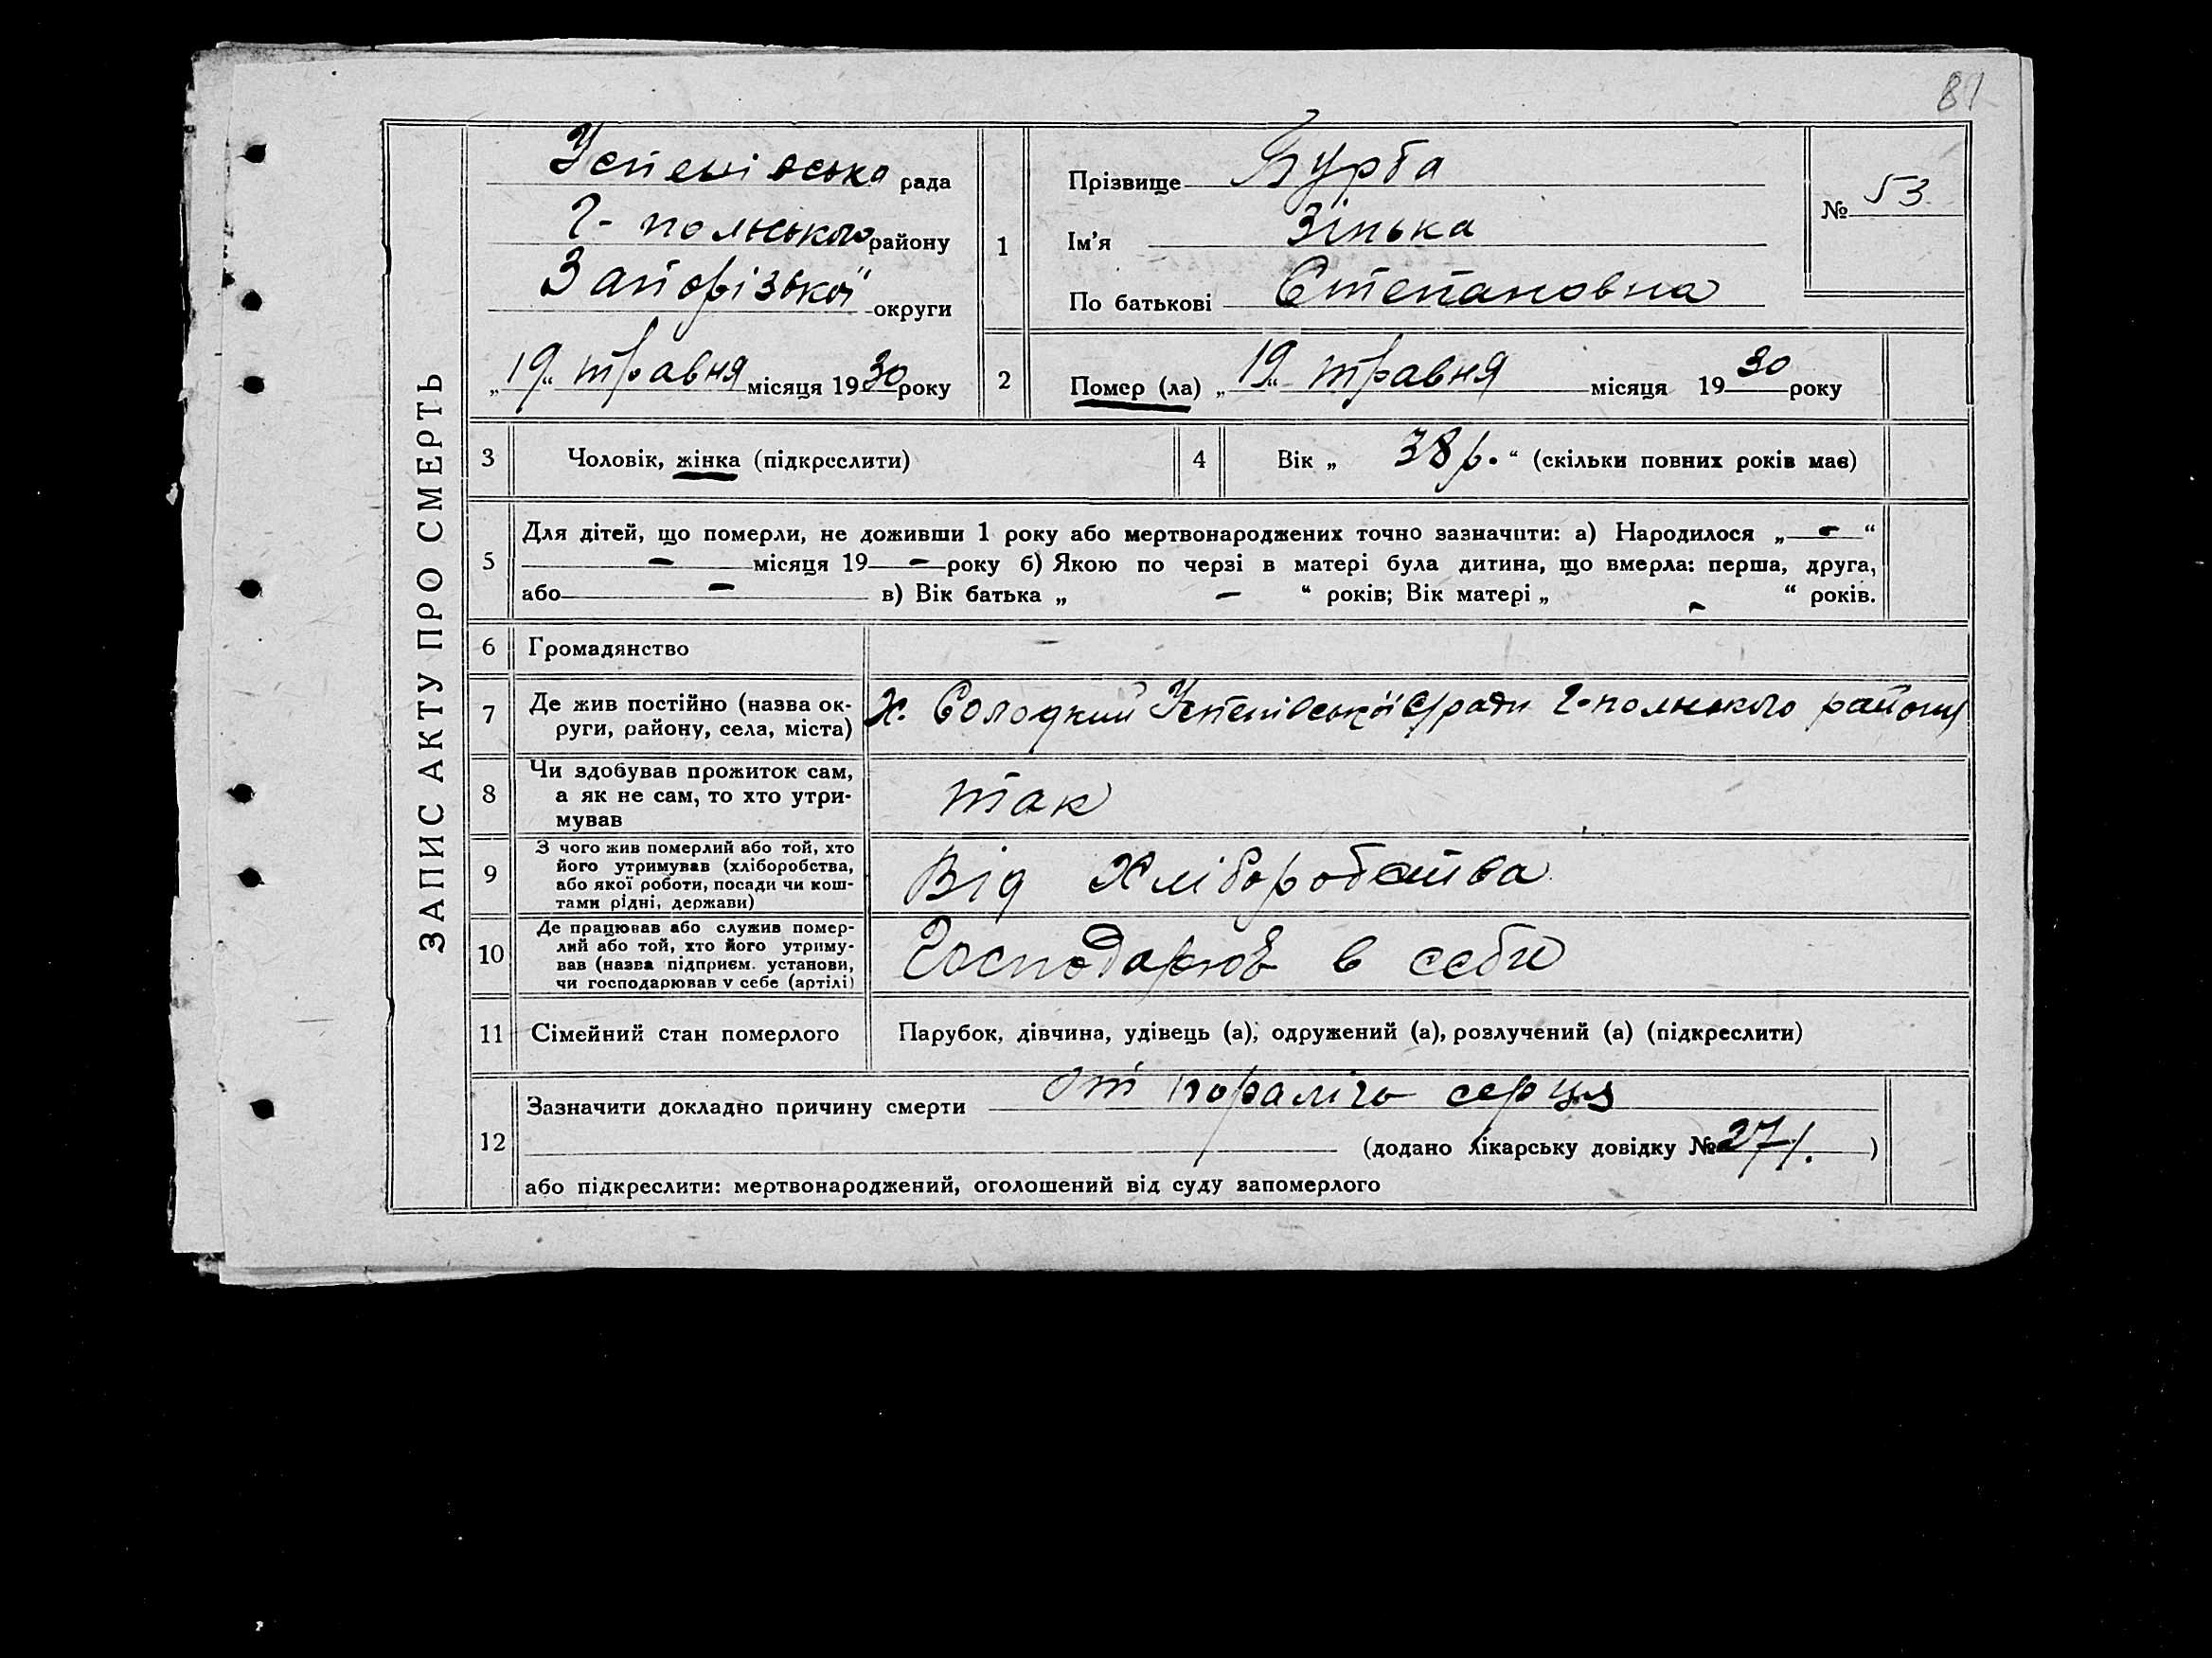 81
ЗАПИС АКТУ ПРО СМЕРТЬ
Успенівська рада
Г-польського району
Запорізької округи
„19“ травня місяця 1930 року
1
Прізвище Бурба
Ім'я Зінька
По батькові Степановна
№ 53
2 Помер (ла) „19“ травня місяця 1930 року
3 Чоловік, жінка (підкреслити)
4 Вік „38 р.“ (скільки повних років має)
5 Для дітей, що померли, не доживши 1 року або мертвонароджених точно зазначити: а) Народилося „-“
- місяця 19 - року б) Якою по черзі в матері була дитина, що вмерла: перша, друга,
або - в) Вік батька „ - “ років; Вік матері „ - “ років.
6 Громадянство -
7 Де жив постійно (назва ок-
руги, району, села, міста)
Х. Солодкий Успенівської с/ради Г-польського району
8 Чи здобував прожиток сам,
а як не сам, то хто утри-
мував
так
9 З чого жив померлий або той, хто
його утримував (хліборобства,
або якої роботи, посади чи кош-
тами рідні, держави)
Від Хліборобства
10 Де працював або служив помер-
лий або той, хто його утриму-
вав (назва підприєм. установи,
чи господарював у себе (артілі)
Господарюв в себи
11 Сімейний стан померлого
Парубок, дівчина, удівець (а), одружений (а), розлучений (а) (підкреслити)
12 Зазначити докладно причину смерти от параліча серця
(додано лікарську довідку № 271. )
або підкреслити: мертвонароджений, оголошений від суду запомерлого